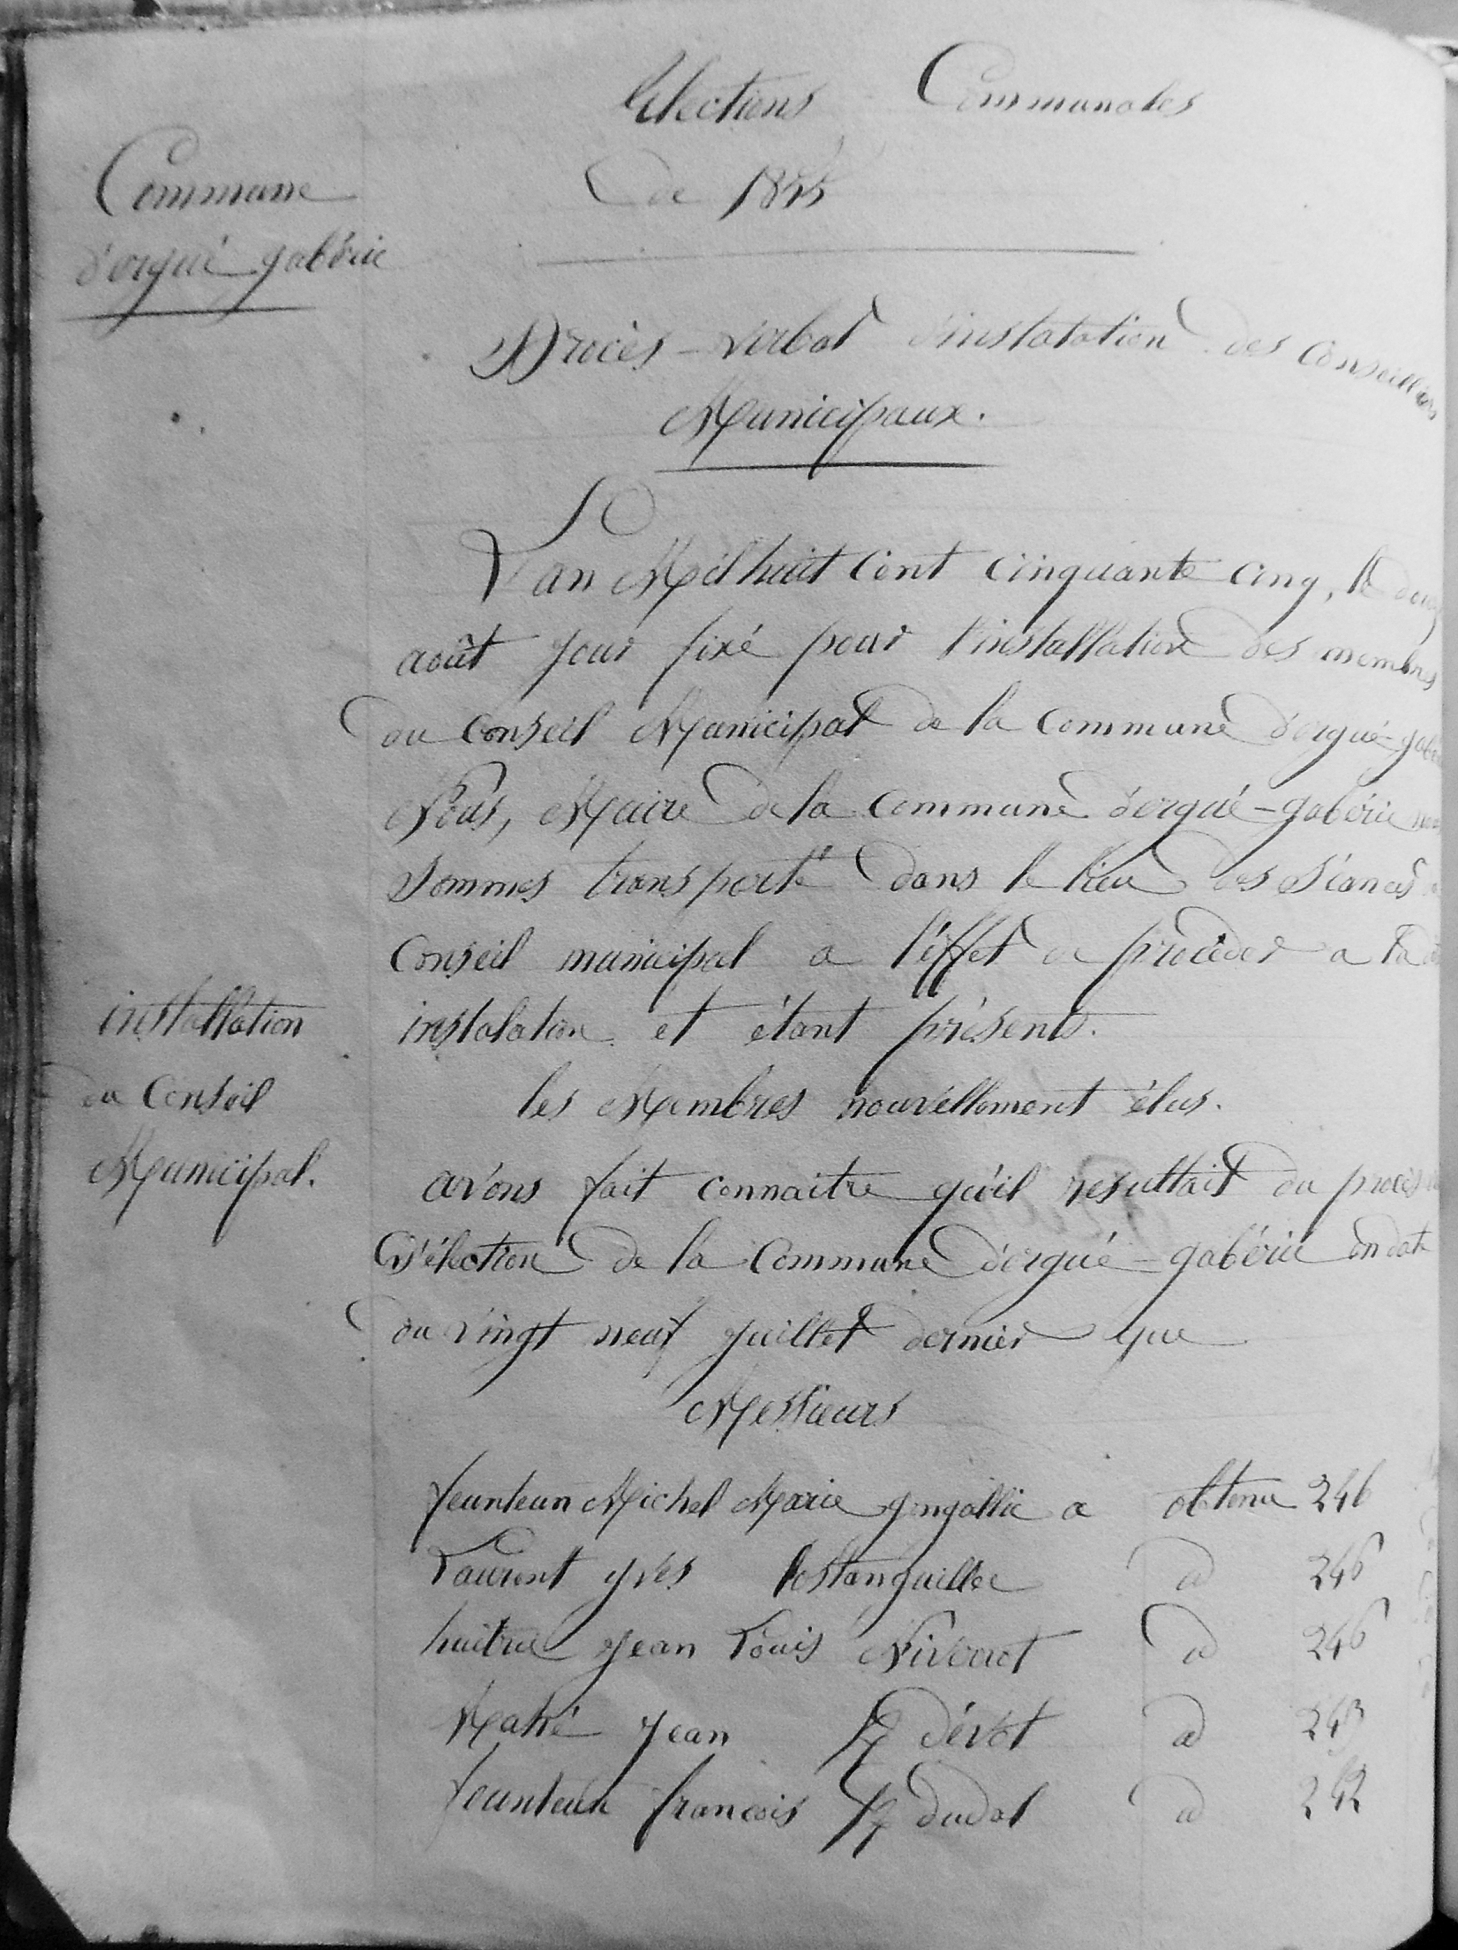 Elections Communales
de 1855
Commune
d'ergué gabéric
Procès-verbal d'instalation des Conseillers
Municipaux.
L'an Mil huit Cent Cinquante Cinq, le
août jour fixé pour l'installation des membres
du Conseil Municipal de la Commune d'ergué-gabé
Nous, Maire de la Commune d'ergué-gabéric nous
Sommes transporté dans le lieu des Séances
Conseil municipal a l'éffet de procéder a la
installation
instalation et étant présents.
du Conseil
les Membres nouvéllement élus.
Municipal.
avons fait connaitre qu'il résultait du procès
d'élection de la Commune d'ergué-gabéric en date
du vingt neuf juillet dernier que
Messieurs
feunteun Michel Marie gongallic a obtenu 246
Laurent yves Costanguillec a 246
huitric jean Louis Niverrot a 246
Mahé jean dévot a 243
feunteun francois dudal a 242